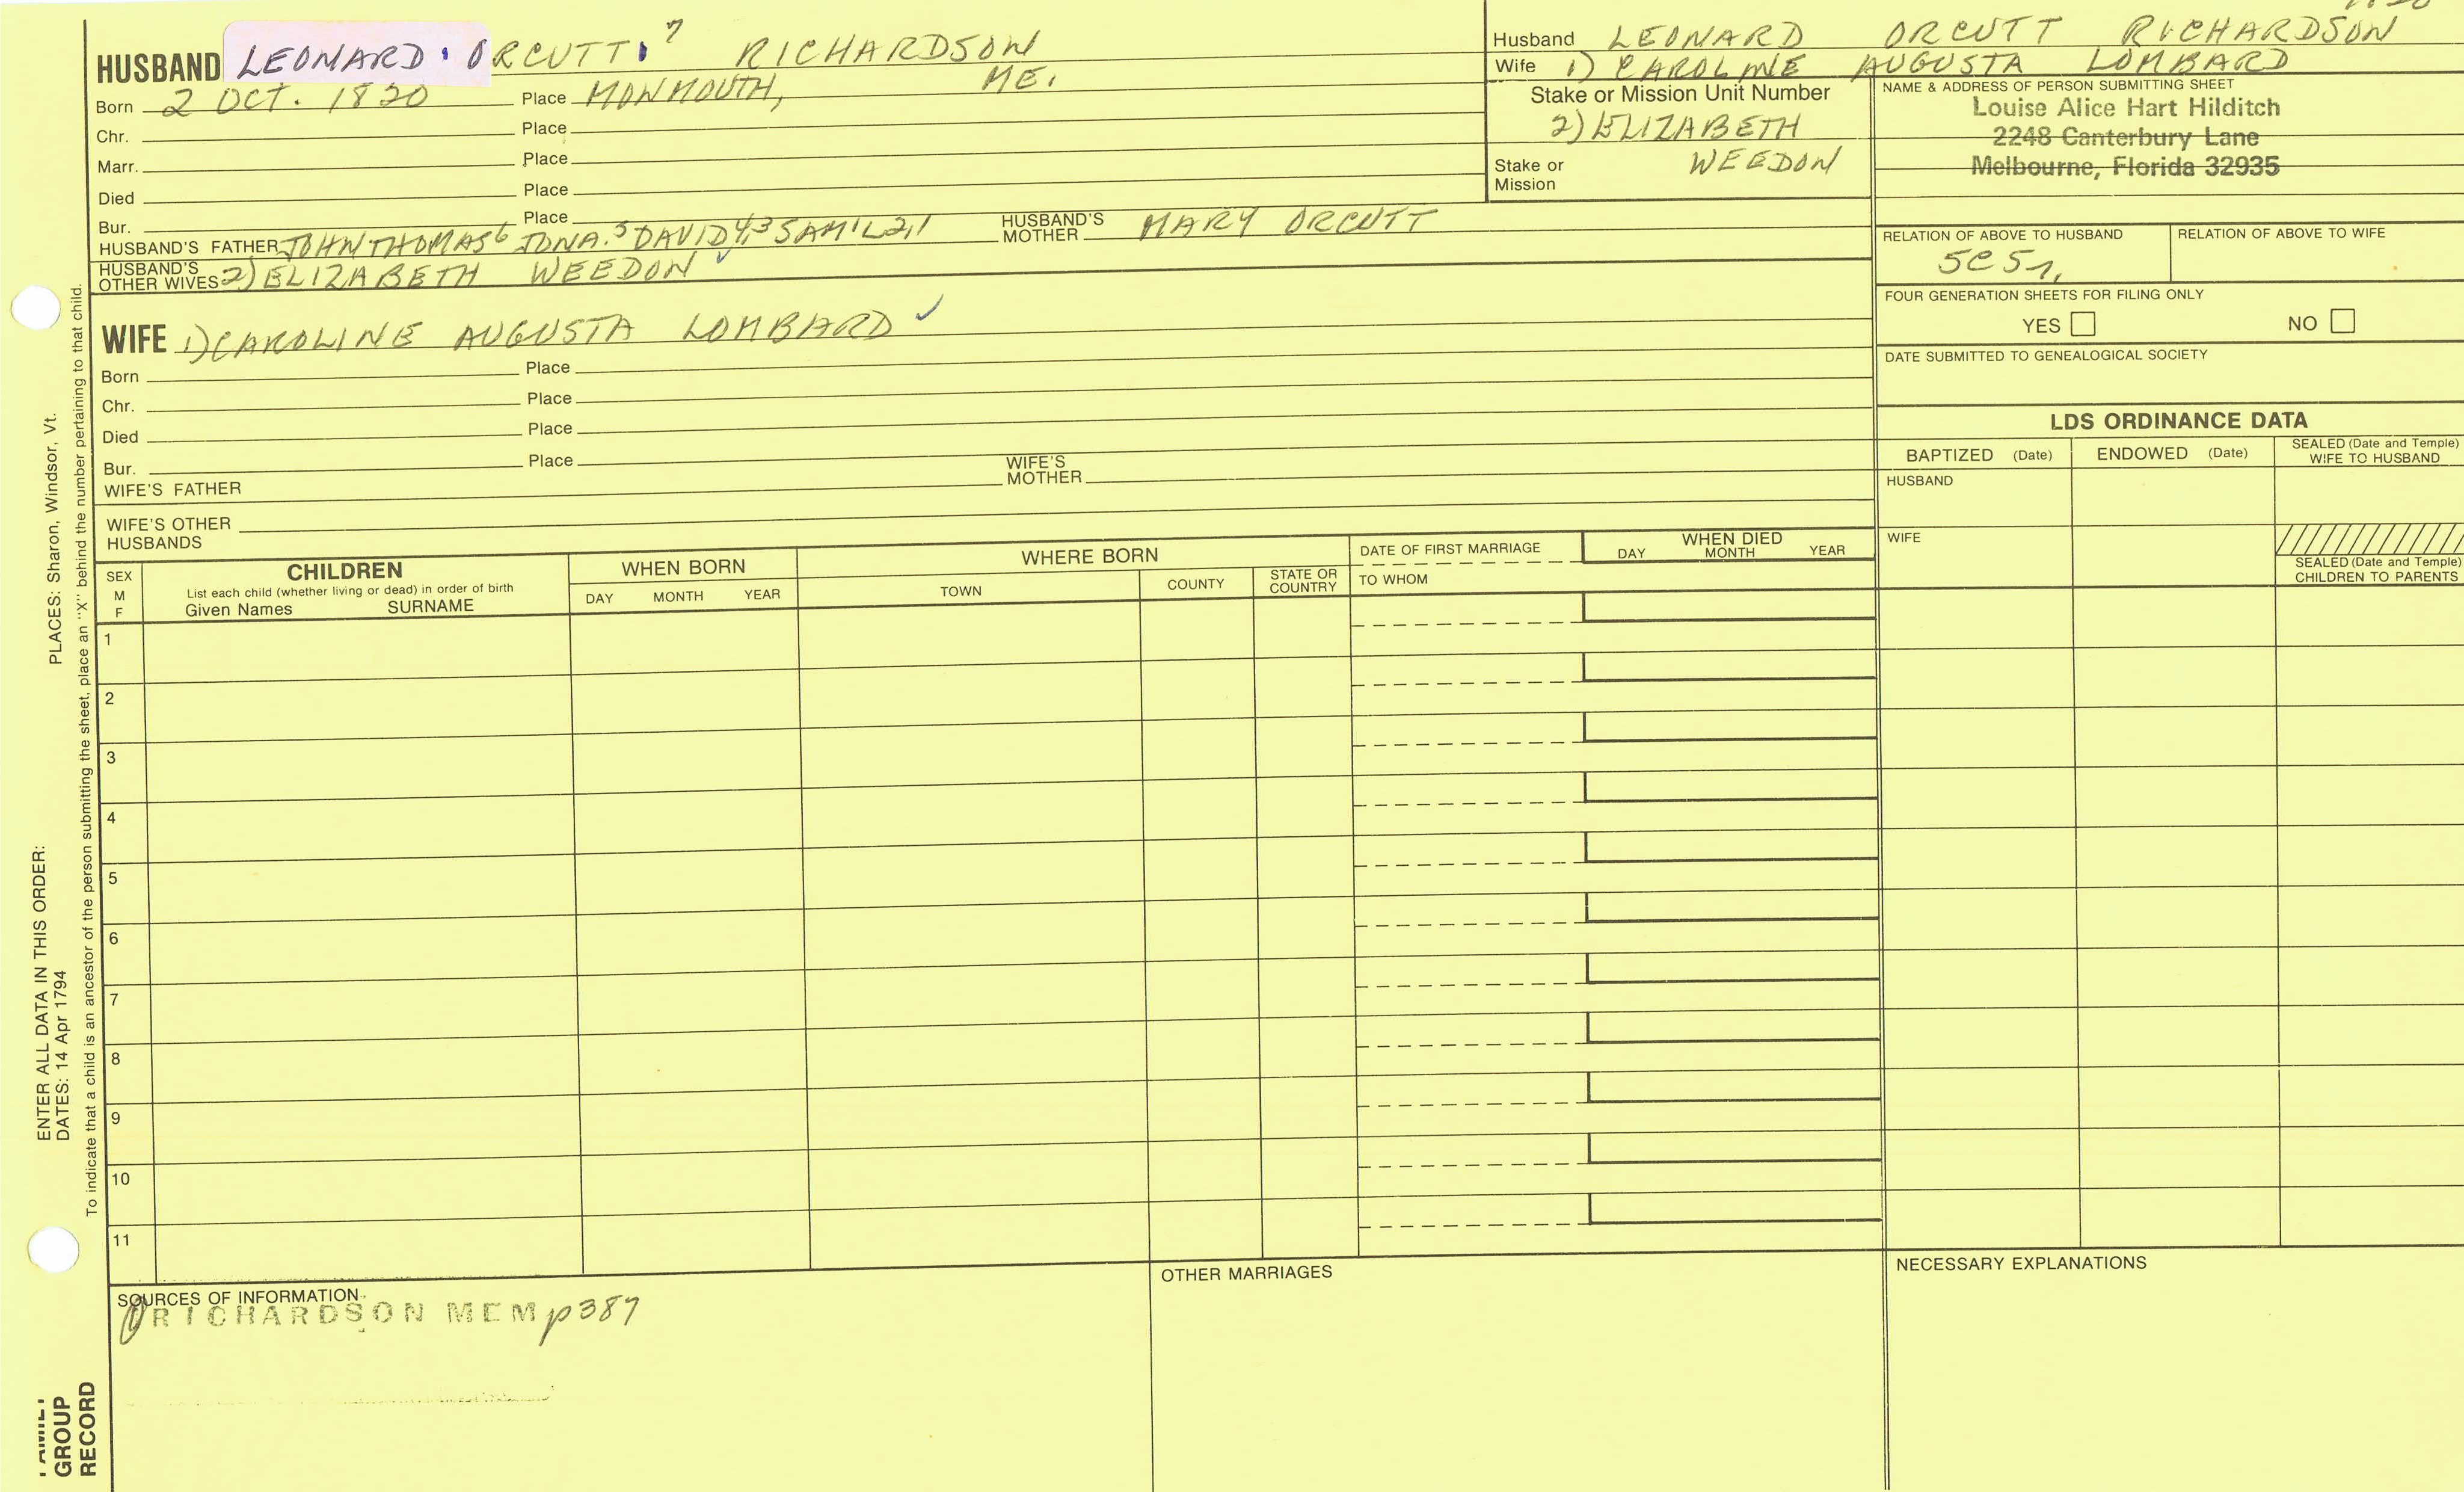 HUSBAND LEONARD ORCUTT 7 RICHARDSON
Born 2 OCT. 1820 Place MONMOUTH, ME.
Chr. Place
Marr. Place
Died Place
Bur. Place
HUSBAND'S FATHER JOHN THOMAS6 JONA.5 DAVID4,3 SAM'L2,1 HUSBAND'S MOTHER MARY ORCUTT
HUSBAND'S OTHER WIVES 2) ELIZABETH WEEDON
WIFE 1) CAROLINE AUGUSTA LOMBARD
Born Place
Chr. Place
Died Place
Bur. Place
WIFE'S FATHER WIFE'S MOTHER
WIFE'S OTHER HUSBANDS
Husband LEONARD ORCUTT RICHARDSON
Wife 1) CAROLINE AUGUSTA LOMBARD
Stake or Mission Unit Number
2) ELIZABETH
WEEDON
Stake or
Mission
NAME & ADDRESS OF PERSON SUBMITTING SHEET
Louise Alice Hart Hilditch
2248 Canterbury Lane
Melbourne, Florida 32935
RELATION OF ABOVE TO HUSBAND RELATION OF ABOVE TO WIFE
FOUR GENERATION SHEETS FOR FILING ONLY
YES NO
DATE SUBMITTED TO GENEALOGICAL SOCIETY
LDS ORDINANCE DATA
BAPTIZED (Date) ENDOWED (Date) SEALED (Date and Temple) WIFE TO HUSBAND
HUSBAND
WIFE
SEALED (Date and Temple)
CHILDREN TO PARENTS
SEX
M
F
CHILDREN
List each child (whether living or dead) in order of birth
Given Names SURNAME
WHEN BORN
DAY MONTH YEAR
WHERE BORN
TOWN COUNTY STATE OR COUNTRY
DATE OF FIRST MARRIAGE
TO WHOM
WHEN DIED
DAY MONTH YEAR
1
2
3
4
5
6
7
8
9
10
11
SOURCES OF INFORMATION
RICHARDSON MEM p387
OTHER MARRIAGES
NECESSARY EXPLANATIONS
PLACES: Sharon, Windsor, Vt.
ENTER ALL DATA IN THIS ORDER:
DATES: 14 Apr 1794
To indicate that a child is an ancestor of the person submitting the sheet, place an "X" behind the number pertaining to that child.
GROUP
RECORD